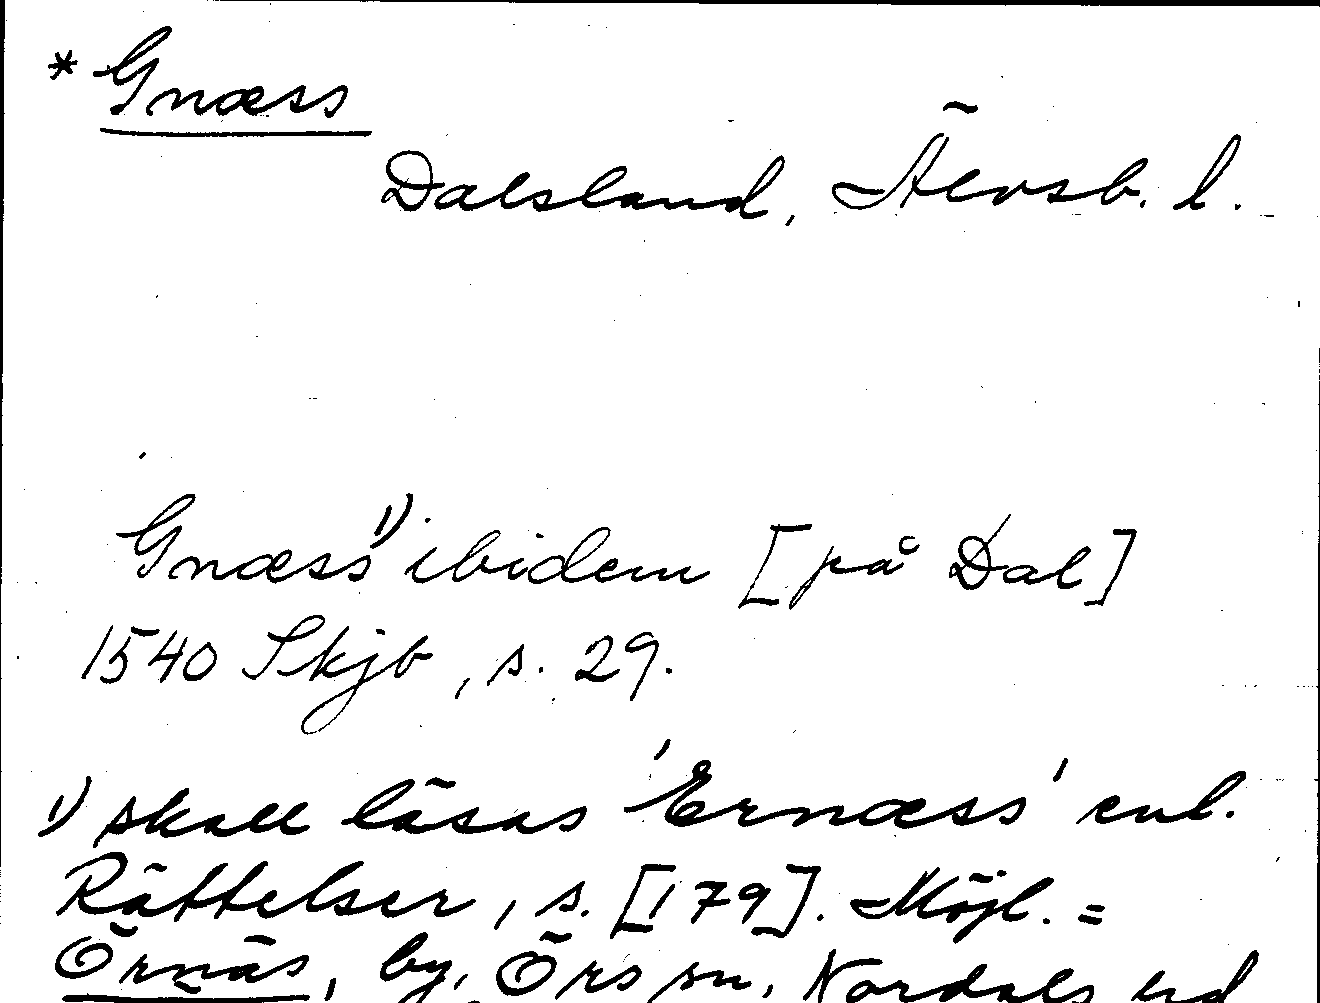 * Gnæss
Dalsland, Älvsb. l.
Gnæss¹⁾ ibidem [på Dal]
1540 Skjb, s. 29.
1) skall läsas 'Ernæss' enl.
Rättelser, s. [179]. Möjl. =
Örnäs, by, Örs sn, Nordals hd